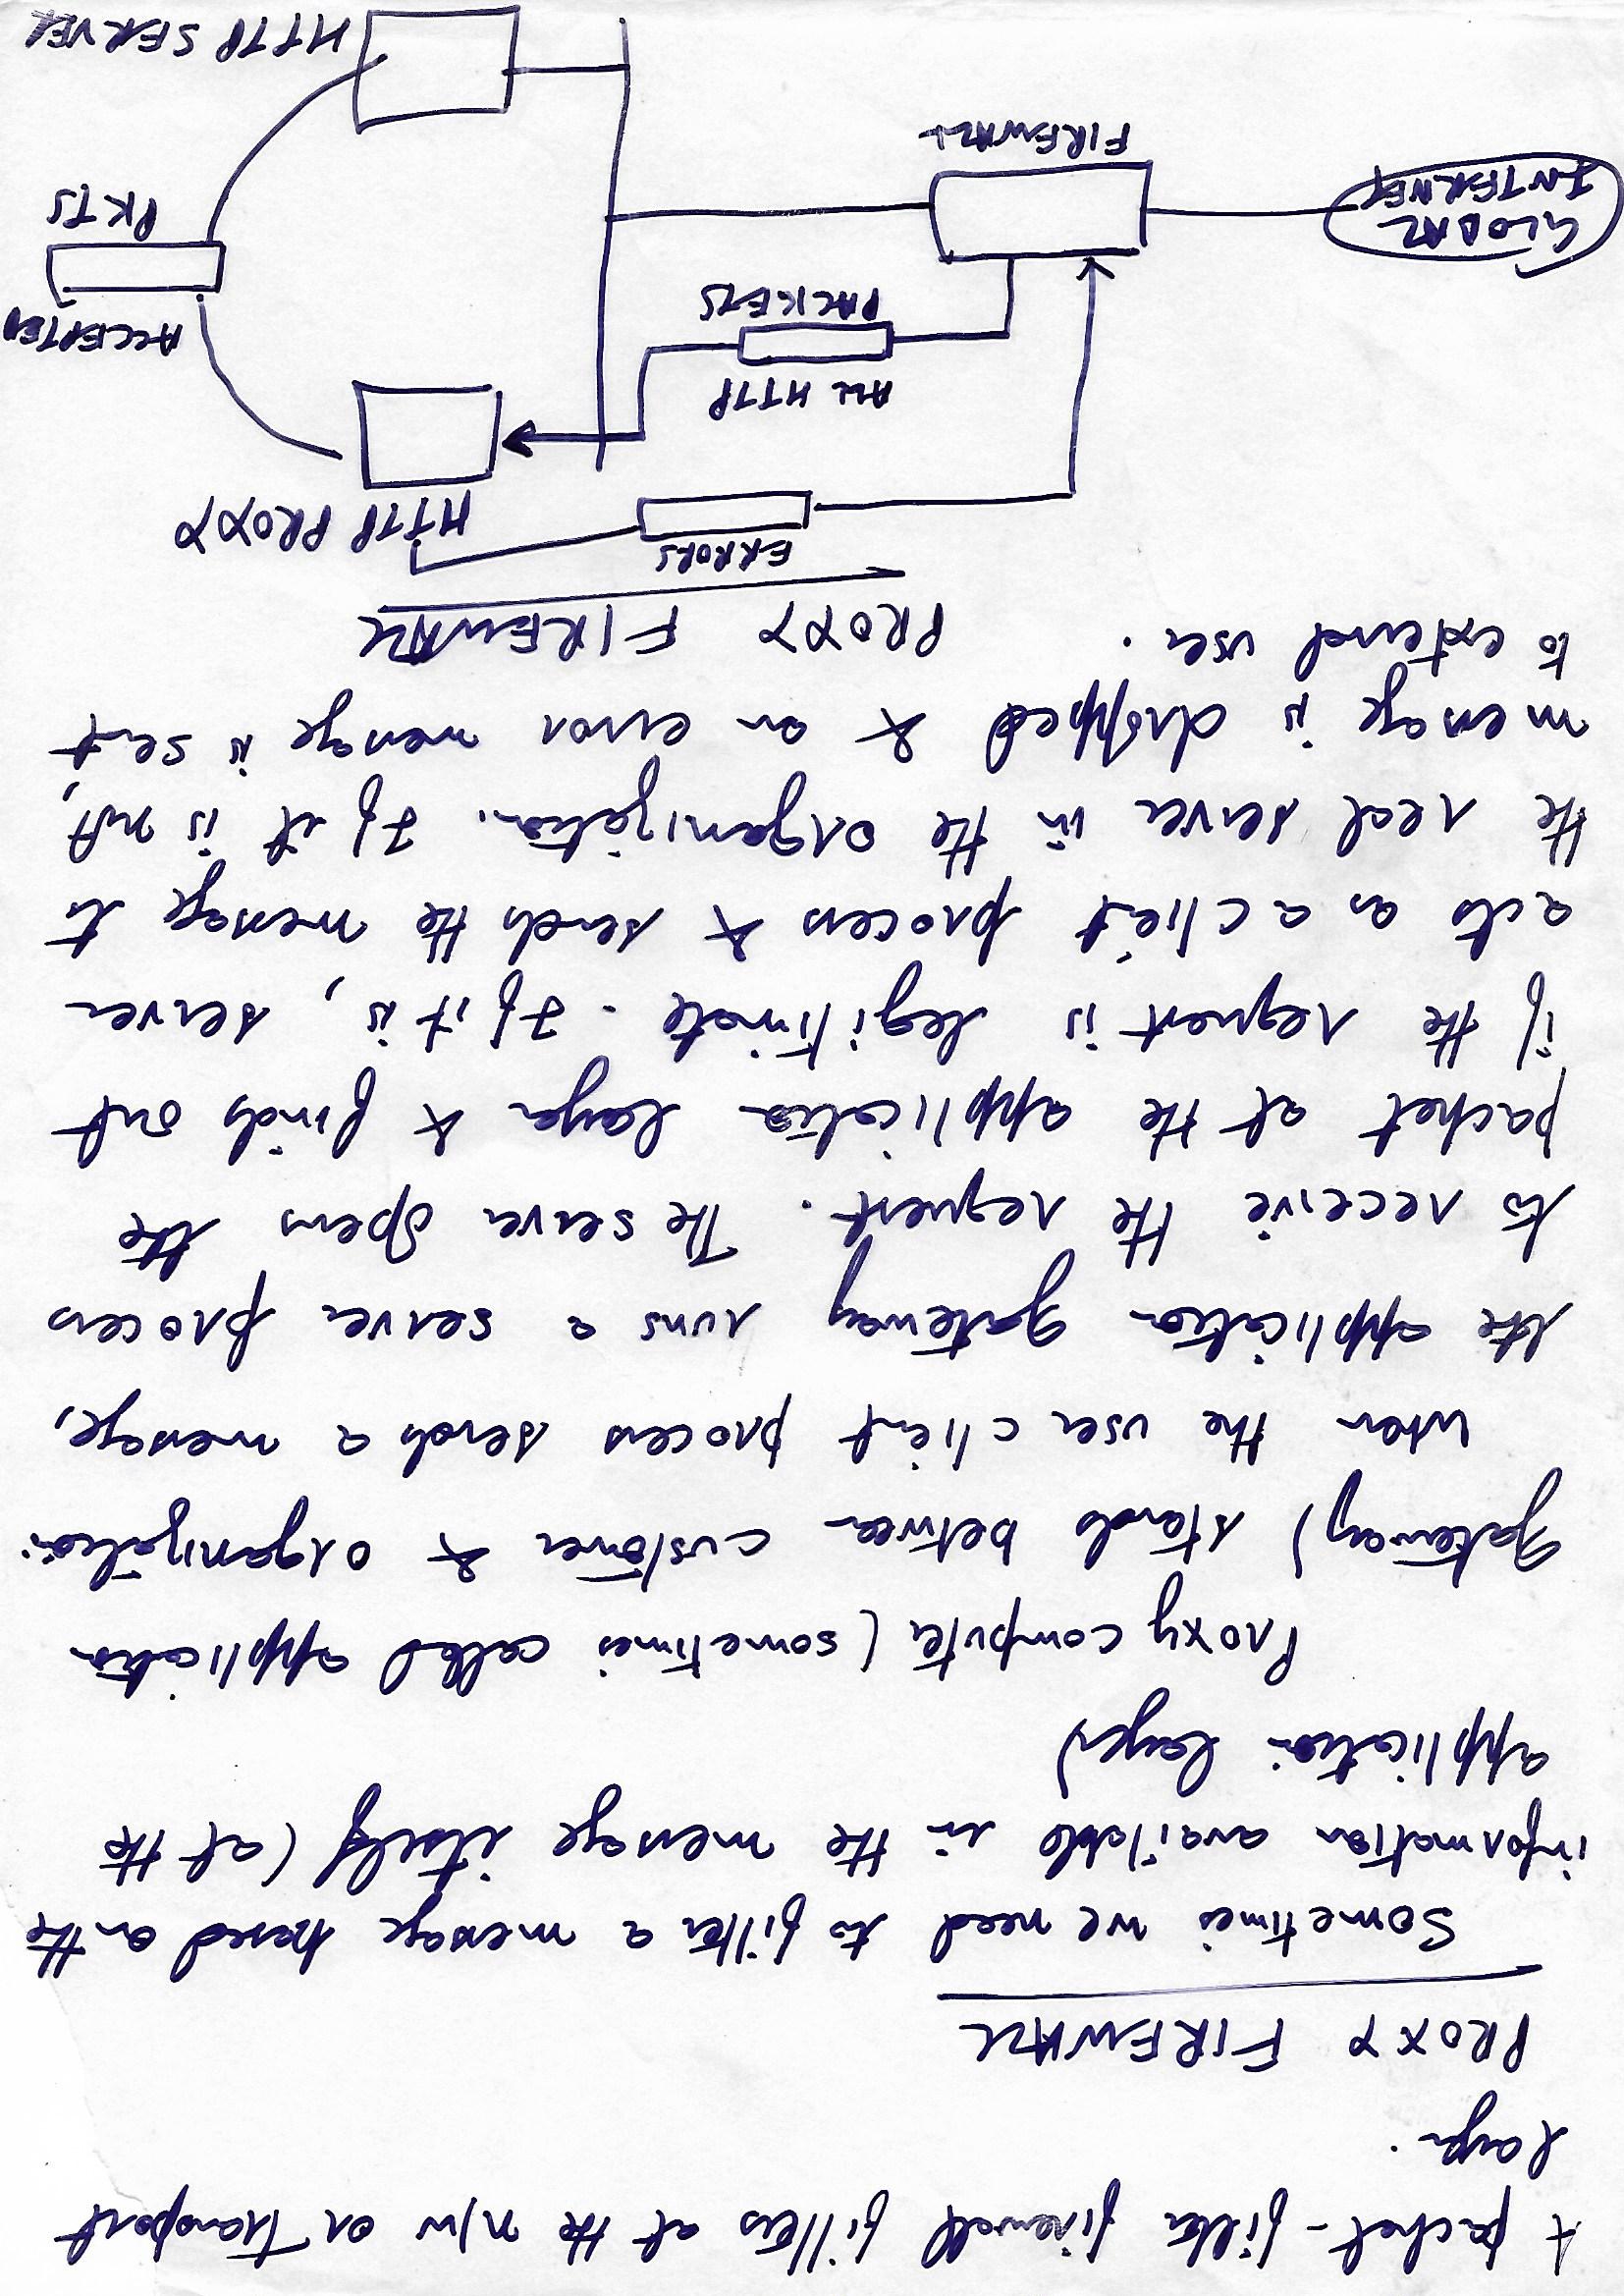 A packet-filter firewall filters at the n/w or Transport
layer.
PROXY FIREWALL
Sometimes we need to filter a message based on the
information available in the message itself (at the
application layer)
Proxy computer (sometimes called application
gateway) stands between customer & organization
when the user client process sends a message,
the application gateway runs a server process
to receive the request. The server opens the
packet at the application layer & finds out
if the request is legitimate. If it is, server
acts as a client process & sends the message to
the real server in the organization. If it is not,
message is dropped & an error message is sent
to external user.
PROXY FIREWALL
ERRORS
HTTP PROXY
ALL HTTP
PACKETS
ACCEPTED
PKTS
GLOBAL
INTERNET
FIREWALL
HTTP SERVER